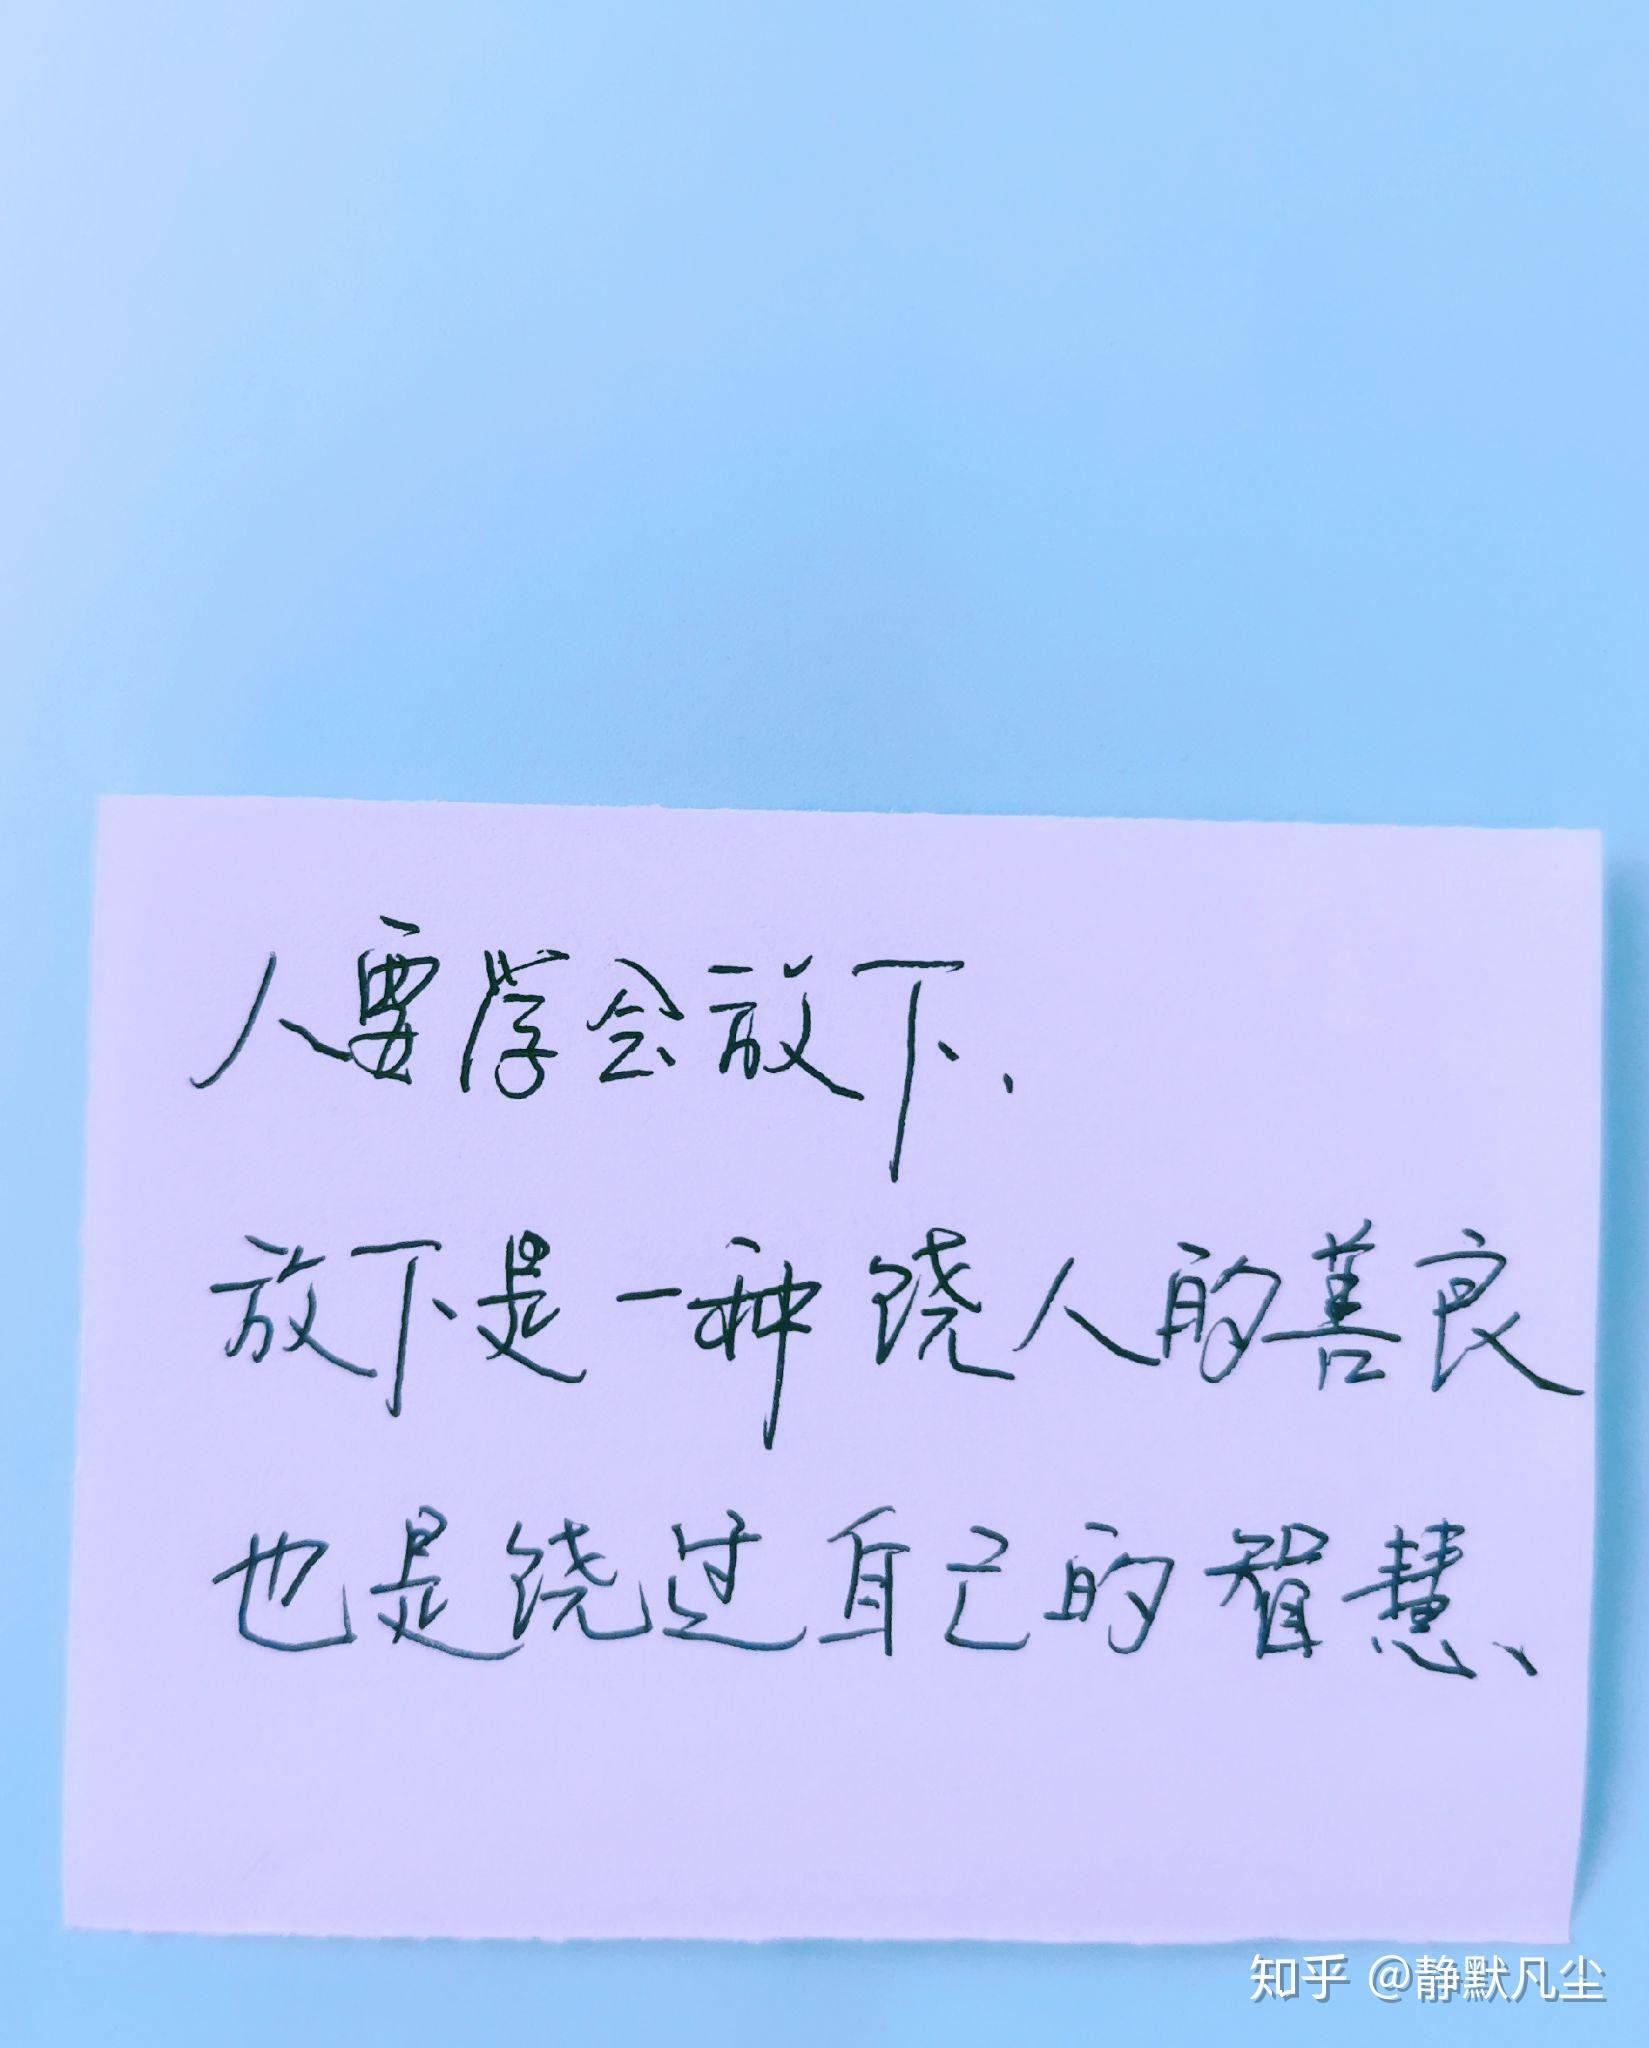 人要学会放下、
放下是一种饶人的善良
也是饶过自己的智慧、
知乎 @静默凡尘